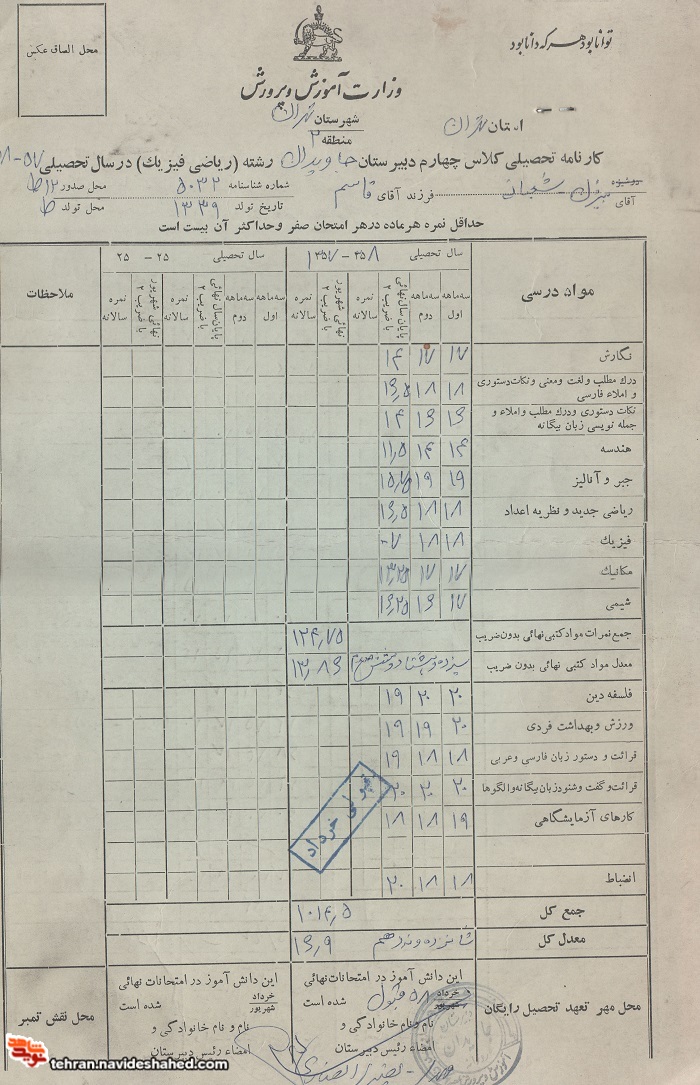 محل الصاق عکس
توانا بود هر که دانا بود
وزارت آموزش و پرورش
استان تهران
شهرستان تهران
منطقه ۲
کارنامه تحصیلی کلاس چهارم دبیرستان جاویدان رشته (ریاضی فیزیک) در سال تحصیلی ۵۷-۵۸
دوشیزه
آقای بیژن شعبان فرزند آقای قاسم شماره شناسنامه ۵۰۳۲ محل صدور ۱۲ط
تاریخ تولد ۱۳۳۹ محل تولد ط
حداقل نمره هر ماده در هر امتحان صفر و حداکثر آن بیست است
مواد درسی سال تحصیلی ۳۵۸ - ۱۳۵۷ سال تحصیلی ۲۵ - ۲۵ ملاحظات
سه ماهه اول سه ماهه دوم پایان سال نهائی با ضریب ۲ نمره سالانه نهائی شهریور با ضریب ۲ نمره سالانه
سه ماهه اول سه ماهه دوم پایان سال نهائی با ضریب ۲ نمره سالانه نهائی شهریور با ضریب ۲ نمره سالانه
نگارش ۱۷ ۱۷ ۱۴
درک مطلب و لغت و معنی و نکات دستوری و املاء فارسی ۱۸ ۱۸ ۱۶٫۵
نکات دستوری و درک مطلب و املاء و جمله نویسی زبان بیگانه ۱۶ ۱۶ ۱۴
هندسه ۱۴ ۱۴ ۱۱٫۵
جبر و آنالیز ۱۹ ۱۹ ۱۵٫۷۵
ریاضی جدید و نظریه اعداد ۱۸ ۱۸ ۱۶٫۵
فیزیک ۱۸ ۱۸ ۰۷
مکانیک ۱۷ ۱۷ ۱۳٫۲۵
شیمی ۱۷ ۱۶ ۱۶٫۲۵
جمع نمرات مواد کتبی نهائی بدون ضریب ۱۲۴٫۷۵
معدل مواد کتبی نهائی بدون ضریب سیزده و هشتاد و شش صدم ۱۳٫۸۶
فلسفه دین ۲۰ ۲۰ ۱۹
ورزش و بهداشت فردی ۲۰ ۱۹ ۱۹
قرائت و دستور زبان فارسی و عربی ۱۸ ۱۸ ۱۹
قرائت و گفت و شنود زبان بیگانه و الگوها ۲۰ ۲۰ ۲۰
کارهای آزمایشگاهی ۱۹ ۱۸ ۱۸
قبولی خرداد
انضباط ۱۸ ۱۸ ۲۰
جمع کل ۱۰۱۴٫۵
معدل کل شانزده و نه دهم ۱۶٫۹
محل مهر تعهد تحصیل رایگان
این دانش آموز در امتحانات نهائی
خرداد
شهریور
۵۸ قبول شده است
نام و نام خانوادگی و
امضاء رئیس دبیرستان
این دانش آموز در امتحانات نهائی
خرداد
شهریور
شده است
نام و نام خانوادگی و
امضاء رئیس دبیرستان
محل نقش تمبر
نوید شاهد
tehran.navideshahed.com